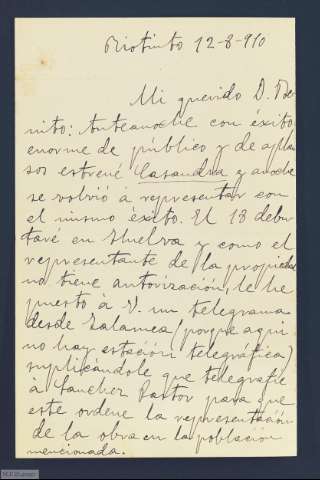 Riotinto 12-8-910
Mi querido D. Be-
nito: Anteanoche con éxito
enorme de público y de aplau-
sos estrené Casandra y anoche
se volvió á representar con
el mismo éxito. El 13 debu-
taré en Huelva y como el
representante de la propiedad
no tiene autorización, le he
puesto á V. un telegrama
desde Zalamea (porque aquí
no hay estación telegráfica)
suplicándole que telegrafíe
á Sanchez Pastor para que
este ordene la representación
de la obra en la población
mencionada.